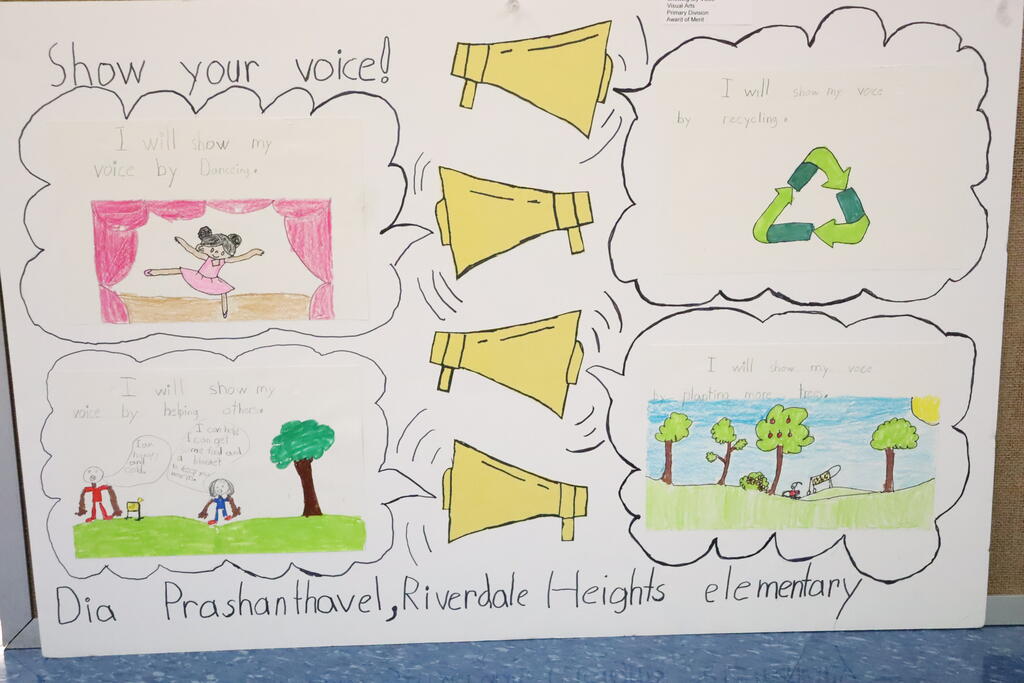 Visual Arts
Primary Division
Award of Merit
Show your voice!
I will show my
voice by Danceing.
I will show my voice
by recycling.
I will show my
voice by helping others.
I can help
I can get
some food and
a blanket
to keep you
I am
hungry
and
cold.
I will show my voce
planting more tres.
Dia Prashanthavel, Riverdale Heights elementary